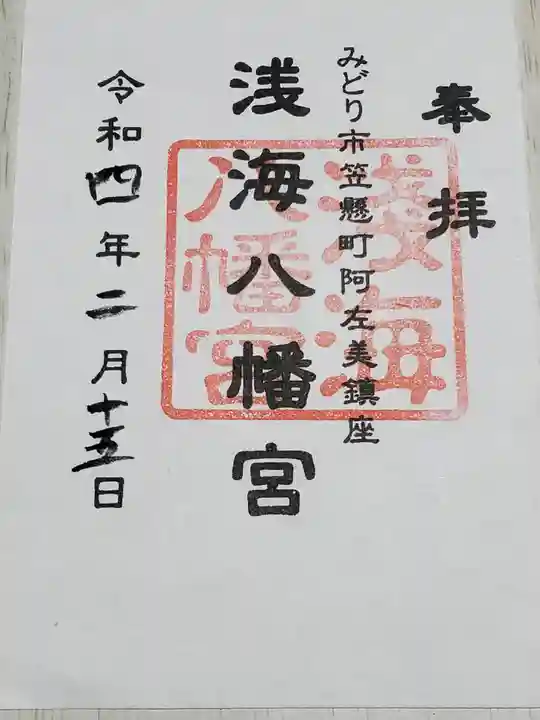 奉拝
みどり市笠懸町阿左美鎮座
浅海八幡宮
淺海
八幡宮
令和四年二月十五日